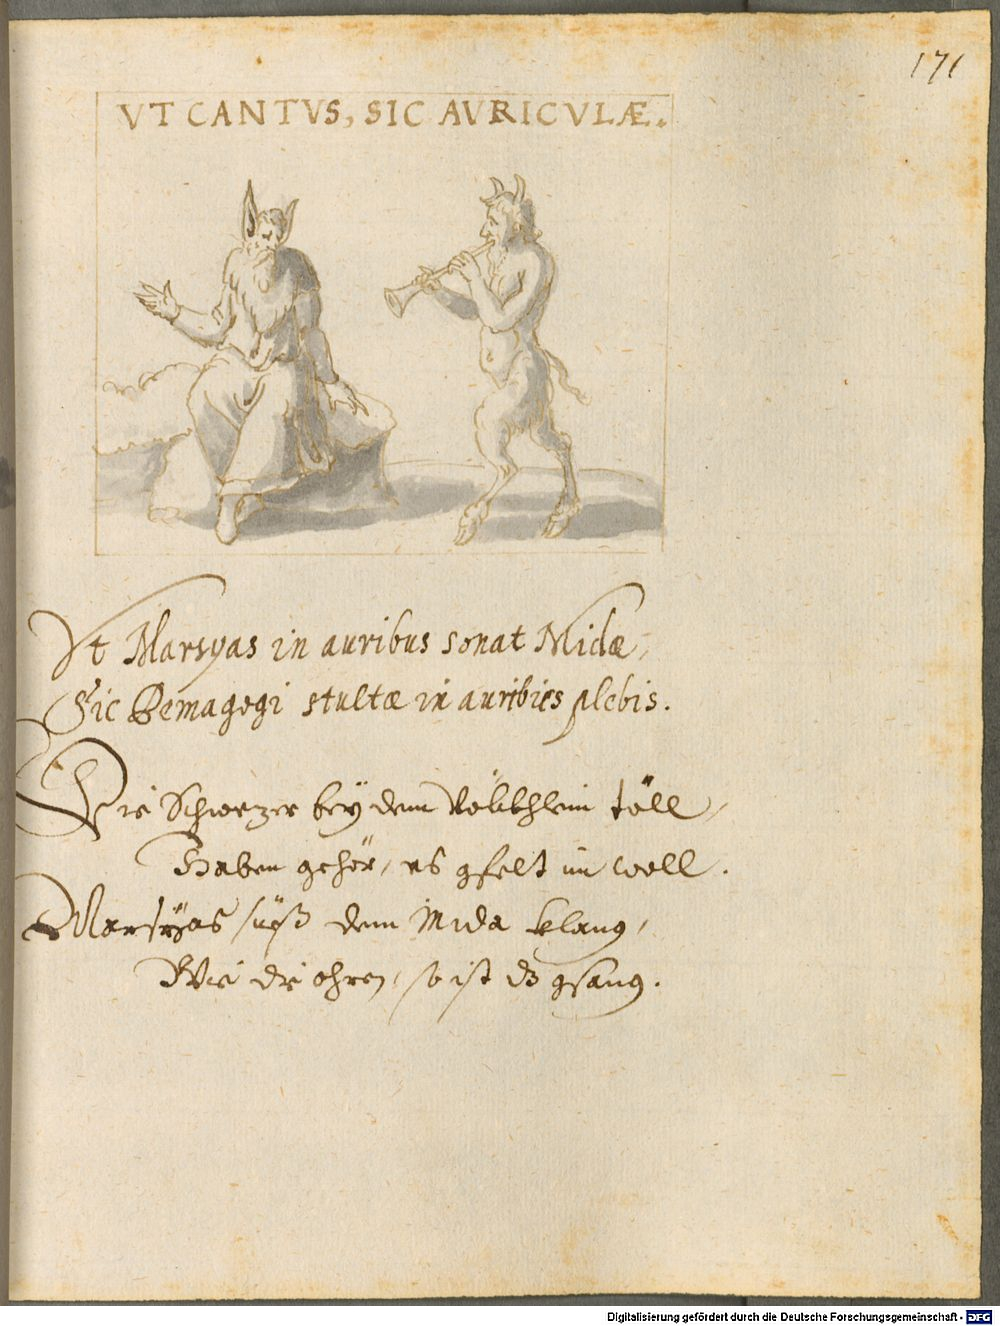 171
VT CANTVS, SIC AVRICVLÆ.
Vt Marsyas in auribus sonat Midæ,
Sic Demagogi stultæ in auribus plebis.
Die Schwezer bey dem Völckhlein töll,
Haben gehör, es gfelt im woll.
Marsÿas süeß dem Mida klang,
Wie die ohren, so ist dz gsang.
Digitalisierung gefördert durch die Deutsche Forschungsgemeinschaft - DFG